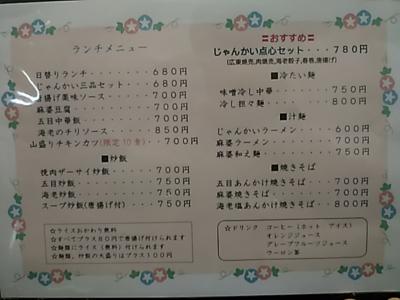 ランチメニュー
日替りランチ・・・・680円
じゃんかい三品セット・・680円
唐揚げ薬味ソース・・・700円
麻婆豆腐・・・・・・700円
五目中華飯・・・・・700円
海老のチリソース・・・850円
山盛りチキンカツ(限定10食)・・700円
■炒飯
挽肉ザーサイ炒飯・・・700円
五目炒飯・・・・・・750円
海老炒飯・・・・・・750円
スープ炒飯(唐揚げ付)・・750円
☆ライスおかわり無料
☆すべてプラス80円で唐揚げ付けられます
☆麺類にライス(無料)付けられます
☆麺類、炒飯の大盛りはプラス100円
〓おすすめ〓
じゃんかい点心セット・・・780円
(広東焼売,肉焼売,海老餃子,春巻,唐揚げ)
■冷たい麺
味噌冷し中華・・・・750円
冷し担々麺・・・・・800円
■汁麺
じゃんかいラーメン・・・600円
麻婆ラーメン・・・・700円
麻婆和え麺・・・・・750円
■焼きそば
五目あんかけ焼きそば・・・700円
麻婆あんかけ焼きそば・・・700円
海老塩あんかけ焼きそば・・800円
☆ドリンク コーヒー(ホット アイス)
オレンジジュース
グレープフルーツジュース
ウーロン茶